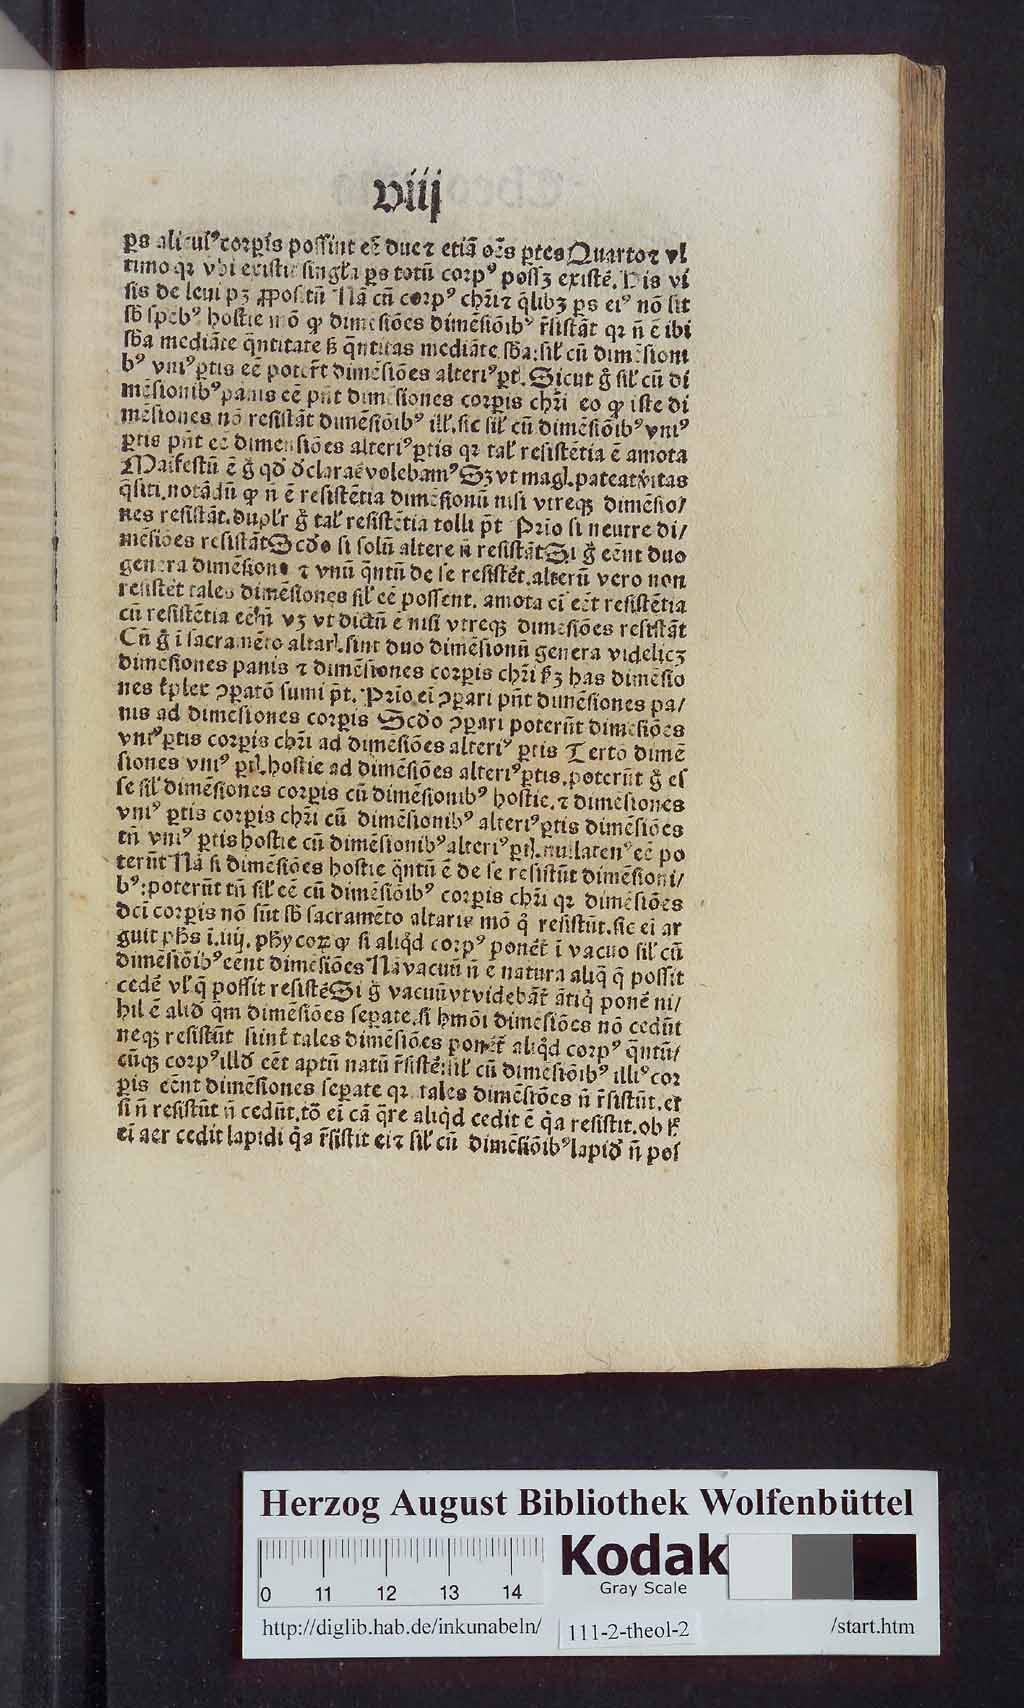 viij
ps alicuiꝰ corꝑis poſſint eē due ⁊ etiā oēs ꝑtes Quarto ⁊ vl
timo qꝛ vbi existit singl'a ps totū corpꝰ possꝫ existē. Ijs vi
sis de leui pꝫ ꝓpositū Nā cū corpꝰ chr̄i ⁊ q̄libꝫ ps eiꝰ nō sit
sb̄ spēbꝰ hostie mō quo dimēsiōes dimēsiōibꝰ r̄sistāt qꝛ n̄ ē ibi
sb̄a mediāte q̄ntitate sꝫ q̄ntitas mediāte sb̄a: sil' cū dimēsioni
bꝰ vniꝰ ꝑtis eē poter̄t dimēsiōes alteriꝰ ꝑt. Sicut g̊ sil' cū di
mēsionibꝰ panis eē pn̄t dimēsiones corꝑis chr̄i eo ꝙ iste di
mēsiones nō resistāt dimēsiōibꝰ ill'. sic sil' cū dimēsiōibꝰ vniꝰ
ꝑtis pn̄t eē dimensiōes alteriꝰ ꝑtis qꝛ tal' resistētia ē amota
Maīfestū ē g̊ qd' d'clarae volebamꝰ Sꝫ vt magl. pateat ṽitas
q̄siti. notādū ꝙ n̄ ē resistētia dimēsionū nisi vtreqꝫ dimēsio/
nes resistāt. dupl'r g̊ tal' resistētia tolli p̄t Prīo si neutre di/
mēsiōes resistāt Scd'o si solū altere n̄ resistāt Si g̊ eēnt duo
genera dimēsionū ⁊ vnū q̄ntū de se resistēt. alterū vero non
resistēt tales dimēsiones sil' eē possent. amota eī eēt resistētia
cū resistētia eē n̄ vꝫ vt dictū ē nisi vtreqꝫ dimēsiōes resistāt
Cū g̊ ī sacramēto altarl. sint duo dimēsionū genera videlicꝫ
dimēsiones panis ⁊ dimēsiones corꝑis chr̄i sꝫ has dimēsio
nes t'plex ꝯpatō sumi p̄t. Prīo eī ꝯpari pn̄t dimēsiones pa/
nis ad dimēsiones corꝑis Scd'o ꝯpari poterūt dimēsiōes
vniꝰ ꝑtis corꝑis chr̄i ad dimēsiōes alteriꝰ ꝑtis Tertō dimē
siones vniꝰ ꝑtl. hostie ad dimēsiōes alteriꝰ ꝑtis. poterūt g̊ es
se sil' dimēsiones corꝑis cū dimēsionibꝰ hostie. ⁊ dimēsiones
vniꝰ ꝑtis corꝑis chr̄i cū dimēsionibꝰ alteriꝰ ꝑtis dimēsiōes
tn̄ vniꝰ ꝑtis hostie cū dimēsionibꝰ alteriꝰ ꝑtl. nullatenꝰ eē po
terūt Nā si dimēsiōes hostie q̄ntū ē de se resistūt dimēsioni/
bꝰ: poterūt tn̄ sil' eē cū dimēsiōibꝰ corꝑis chr̄i qꝛ dimēsiōes
dcī corꝑis nō sūt sb̄ sacramēto altaris mō q̊ resistūt. sic eī ar
guit ph̄s ī. iiij. phycoꝝ ꝙ si aliq̊d corpꝰ ponēt' ī vacuo sil' cū
dimēsiōibꝰ eēnt dimēsiōes Nā vacuū n̄ ē natura aliq̄ q̄ possit
cedē vl' q̄ possit resistē Si g̊ vacuū vt videbāt' ātiq̊ ponē ni/
hil ē aliud q̄m dimēsiōes seꝑate. si hmōi dimēsiōes nō cedūt
neqꝫ resistūt si int' tales dimēsiōes ponēt' aliq̊d corpꝰ q̄ntū/
cūqꝫ corpꝰ illd' eēt aptū natū r̄sistē: sil' cū dimēsiōibꝰ illiꝰ cor
ꝑis eēnt dimēsiones seꝑate qꝛ tales dimēsiōes n̄ r̄sistūt. et
si n̄ resistūt n̄ cedūt. tō eī cā q̄re aliq̊d cedit ē q̊a resistit. ob sꝫ
eī aer cedit lapidi q̊a r̄sistit ei ⁊ sil' cū dimēsiōibꝰ lapid' n̄ pos
Herzog August Bibliothek Wolfenbüttel
0 11 12 13 14
Kodak
Gray Scale
http://diglib.hab.de/inkunabeln/ 111-2-theol-2 /start.htm